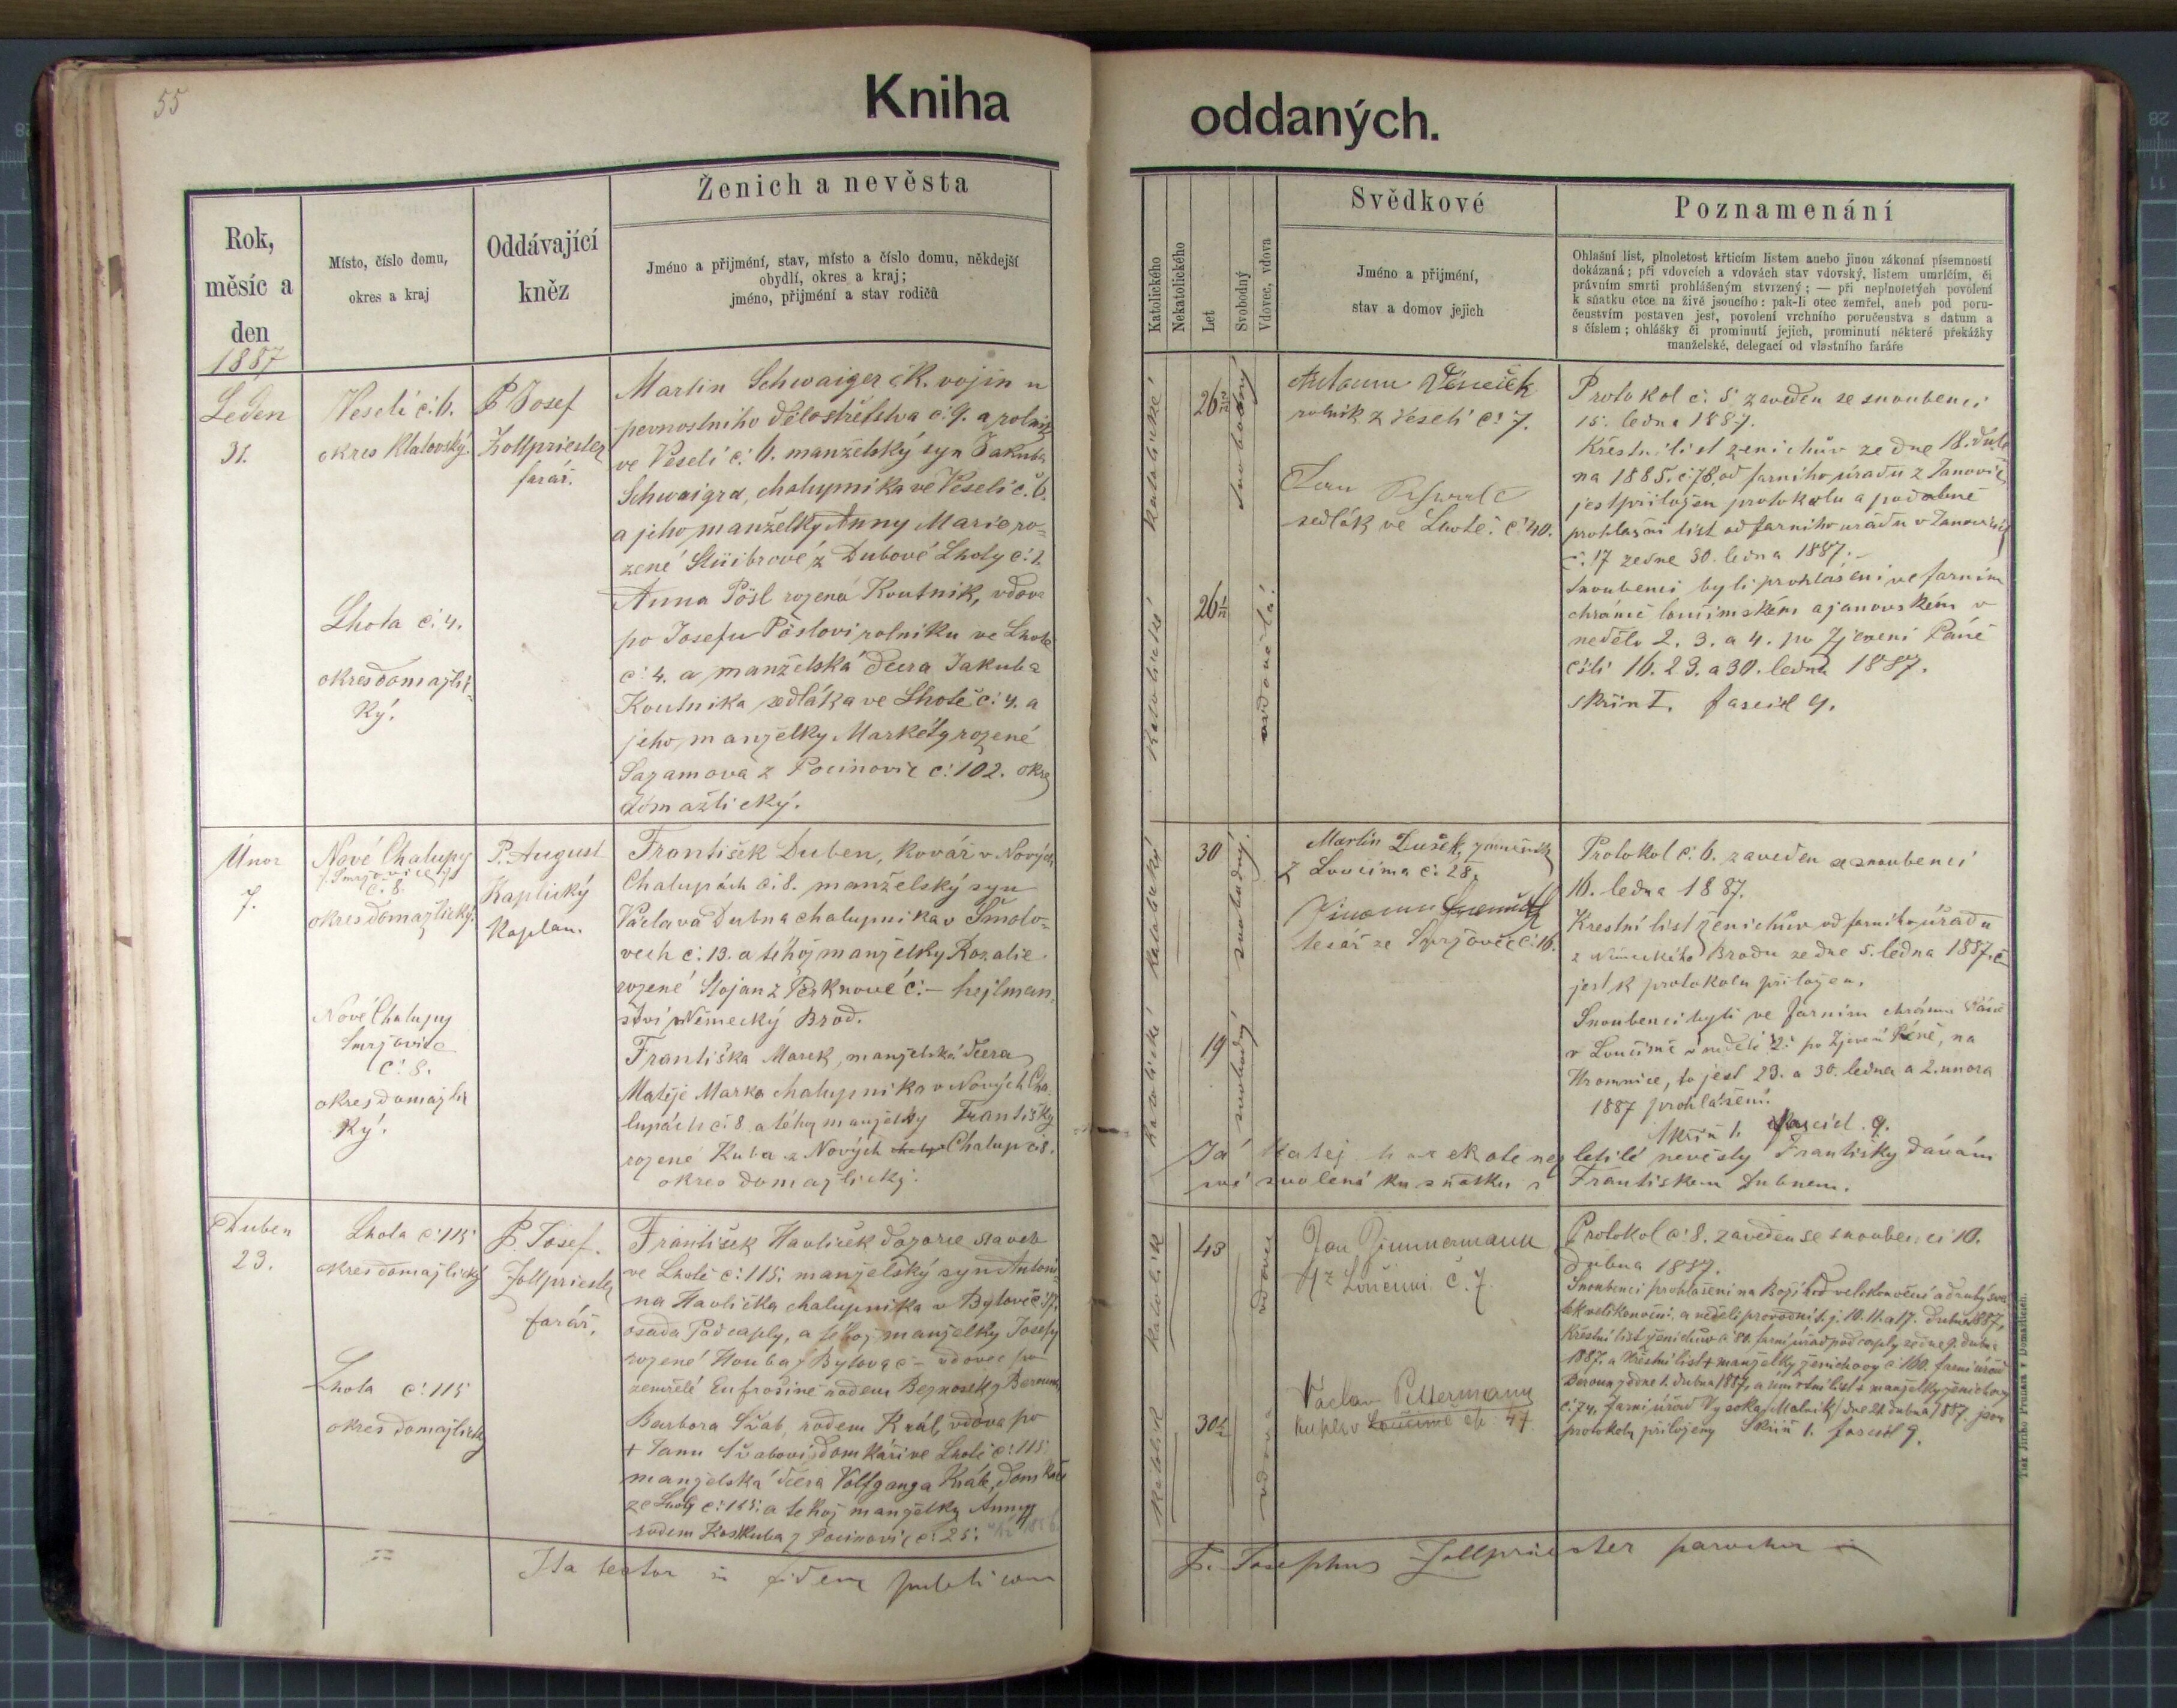 55
Kniha
oddaných.
Rok,
měsíc a
den
1887
Místo, číslo domu,
okres a kraj
Oddávající
kněz
Ženich a nevěsta
Jméno a přijmění, stav, místo a číslo domu, někdejší
obydlí, okres a kraj;
jméno, přijmění a stav rodičů
Katolického
Nekatolického
Let
Svobodný
Vdovec, vdova
Svědkové
Jméno a přijmění,
stav a domov jejich
Poznamenání
Ohlašní list, plnoletost křticím listem anebo jinou zákonní písemností
dokázaná; při vdovcích a vdovách stav vdovský, listem umrlčím, či
právním smrti prohlášeným stvrzený; — při neplnoletých povolení
k sňatku otce na živě jsoucího: pak-li otec zemřel, aneb pod poru-
čenstvím postaven jest, povolení vrchního poručenstva s datum a
s číslem; ohlášky či prominutí jejich, prominutí některé překážky
manželské, delegací od vlastního faráře
Leden
31.
Veselí č: 6.
okres Klatovský.
P. Josef
Zollpriester
farář.
Martin Schwaiger c.K. vojín u
pevnostního dělostřelstva č: 9. a rolník
ve Veselí č: 6. manželský syn Jakuba
Schwaigra, chalupníka ve Veselí č. 6.
a jeho manželky Anny Marie ro-
zené z Dubové Lhoty č: 2.
Lhota č: 4.
okres domažlic-
ký.
Anna Pösl rozená Koutník, vdova
po Josefu Pöslovi rolníku ve Lhotě
č: 4. a manželská dcera Jakuba
Koutníka sedláka ve Lhotě č: 4. a
jeho manželky Markéty rozené
Sazamova z Pocinovic č: 102. okres
domažlický.
katolické
26
svobodný
rolník z Veselí č: 7.
Jan
sedlák ve Lhotě. č: 40.
katolické
26
ovdovělá
Protokol č: 5. zaveden se snoubenci
15. ledna 1887.
Křestní list ženichův ze dne 18. dub-
na 1885. č: 78. od farního úřadu z Janovic
jest přiložen protokolu a podobně
prohlašní list od farního úřadu v Janovicích
č: 17 ze dne 30. ledna 1887.
Snoubenci byli prohlášeni ve farním
chrámě loučimském a janovském v
neděli 2. 3. a 4. po Zjevení Páně
čili 16. 23. a 30. ledna 1887.
skříň I. fascikl 9.
Únor
7.
Nové Chalupy
/: Smržovice :/
č: 8.
okres domažlický.
P. August
Kaplický
Kaplan.
František Duben, kovář v Nových
Chalupách č: 8. manželský syn
Václava Dubna chalupníka v Smolo-
vech č: 13. a téhož manželky Rozalie
rozené Stojan z č: – hejtman-
ství Německý Brod.
Nové Chalupy
Smržovice
č: 8.
okres domažlic
ký.
Františka Marek, manželská dcera
Matěje Marka chalupníka v Nových Cha-
lupách č: 8 a téhož manželky Františky
rozené Kuba z Nových Chalup č: 8.
okres domažlický.
katolický
30
svobodný.
Martin Dušek,
z Loučima č: 28.
tesář ze Smržovic č: 16.
katolické
19
svobodný
Protokol č: 6. zaveden se snoubenci
16. ledna 1887.
Křestní list ženichův od farního úřadu
z Německého Brodu ze dne 5. ledna 1887. č
jest k protokolu přiložen.
Snoubenci byli ve farním chrámu Páně
v Loučimě v neděli 2: po Zjevení Páně, na
Hromnice, to jest 23. a 30. ledna a 2. února
1887 prohlášeni.
Skříň 1. fascikl. 9.
Já Matěj Marek otec nezletilé nevěsty Františky dávám
své svolení ku sňatku s Františkem Dubnem.
Duben
23.
Lhota č: 115
okres domažlický
P. Josef.
Zollpriester
farář.
František Havlíček dozorce staveb
ve Lhotě č: 115. manželský syn Anto-
na Havlíčka chalupníka v Bytově č: 17.
osada Podcaply, a téhož manželky Josefy
rozené Houba z Bytova č – vdovec po
zemřelé Eufrosině rodem Beznosek z Berouna
Lhota č: 115
okres domažlický
Barbora Šváb, rodem Král, vdova po
+ Janu Švabovi, domkáři ve Lhotě č: 115
manželská dcera Volfganga Krále, domkáře
ze Lhoty č: 115. a téhož manželky Anny
rodem Koskuba z Pocinovic č: 25.
katolík
43
vdovec
Jan Zimmermann
z Loučimi č. 7.
katolík
30½
vdova
Václav Pittermann
Protokol č: 8. zaveden se snoubenci 10.
dubna 1887.
Snoubenci prohlášeni na Boží hod velikonoční a druhý svá-
tek velikonoční a neděli provodní t. j. 10. 11. a 17. dubna 1887,
Křestní list ženichův č 80. farní úřad podcaply ze dne 9. dubna
1887. a křestní list + manželky ženichovy č 160. farní úřad
Beroun ze dne 1. dubna 1887, a úmrtní list + manželky ženichovy
č: 74. farní úřad Vysoká /Mělník/ dne 21. dubna 1887. jsou
protokolu přiloženy Skříň 1. fascikl 9.
Ita testor in fidem publicam
P. Josephus Zollpriester parochus
Tisk Jiřího Prunara v Domažlicích.